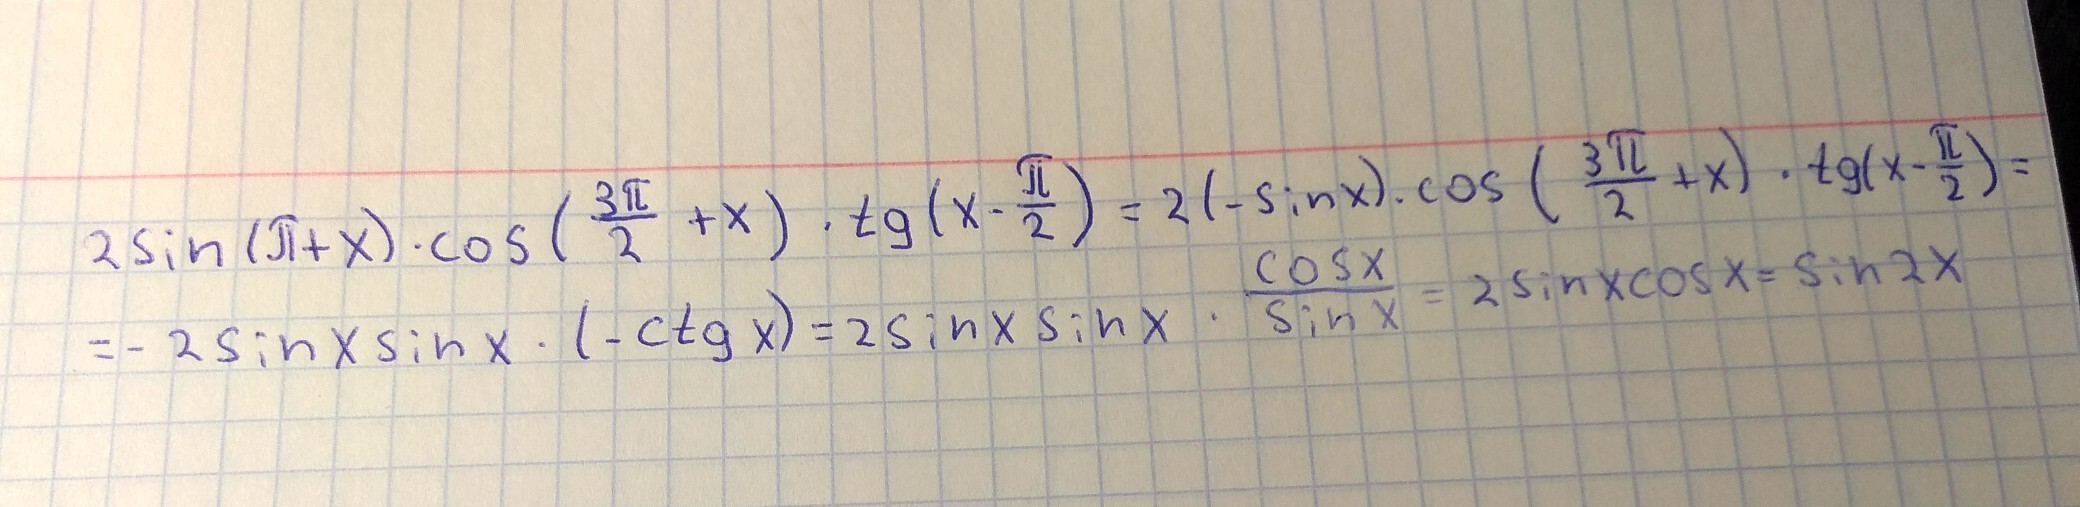 2sin(π+x)·cos(3π/2 +x)·tg(x-π/2)=2(-sinx)·cos(3π/2+x)·tg(x-π/2)=
=-2sinxsinx·(-ctgx)=2sinxsinx·cosx/sinx=2sinxcosx=sin2x